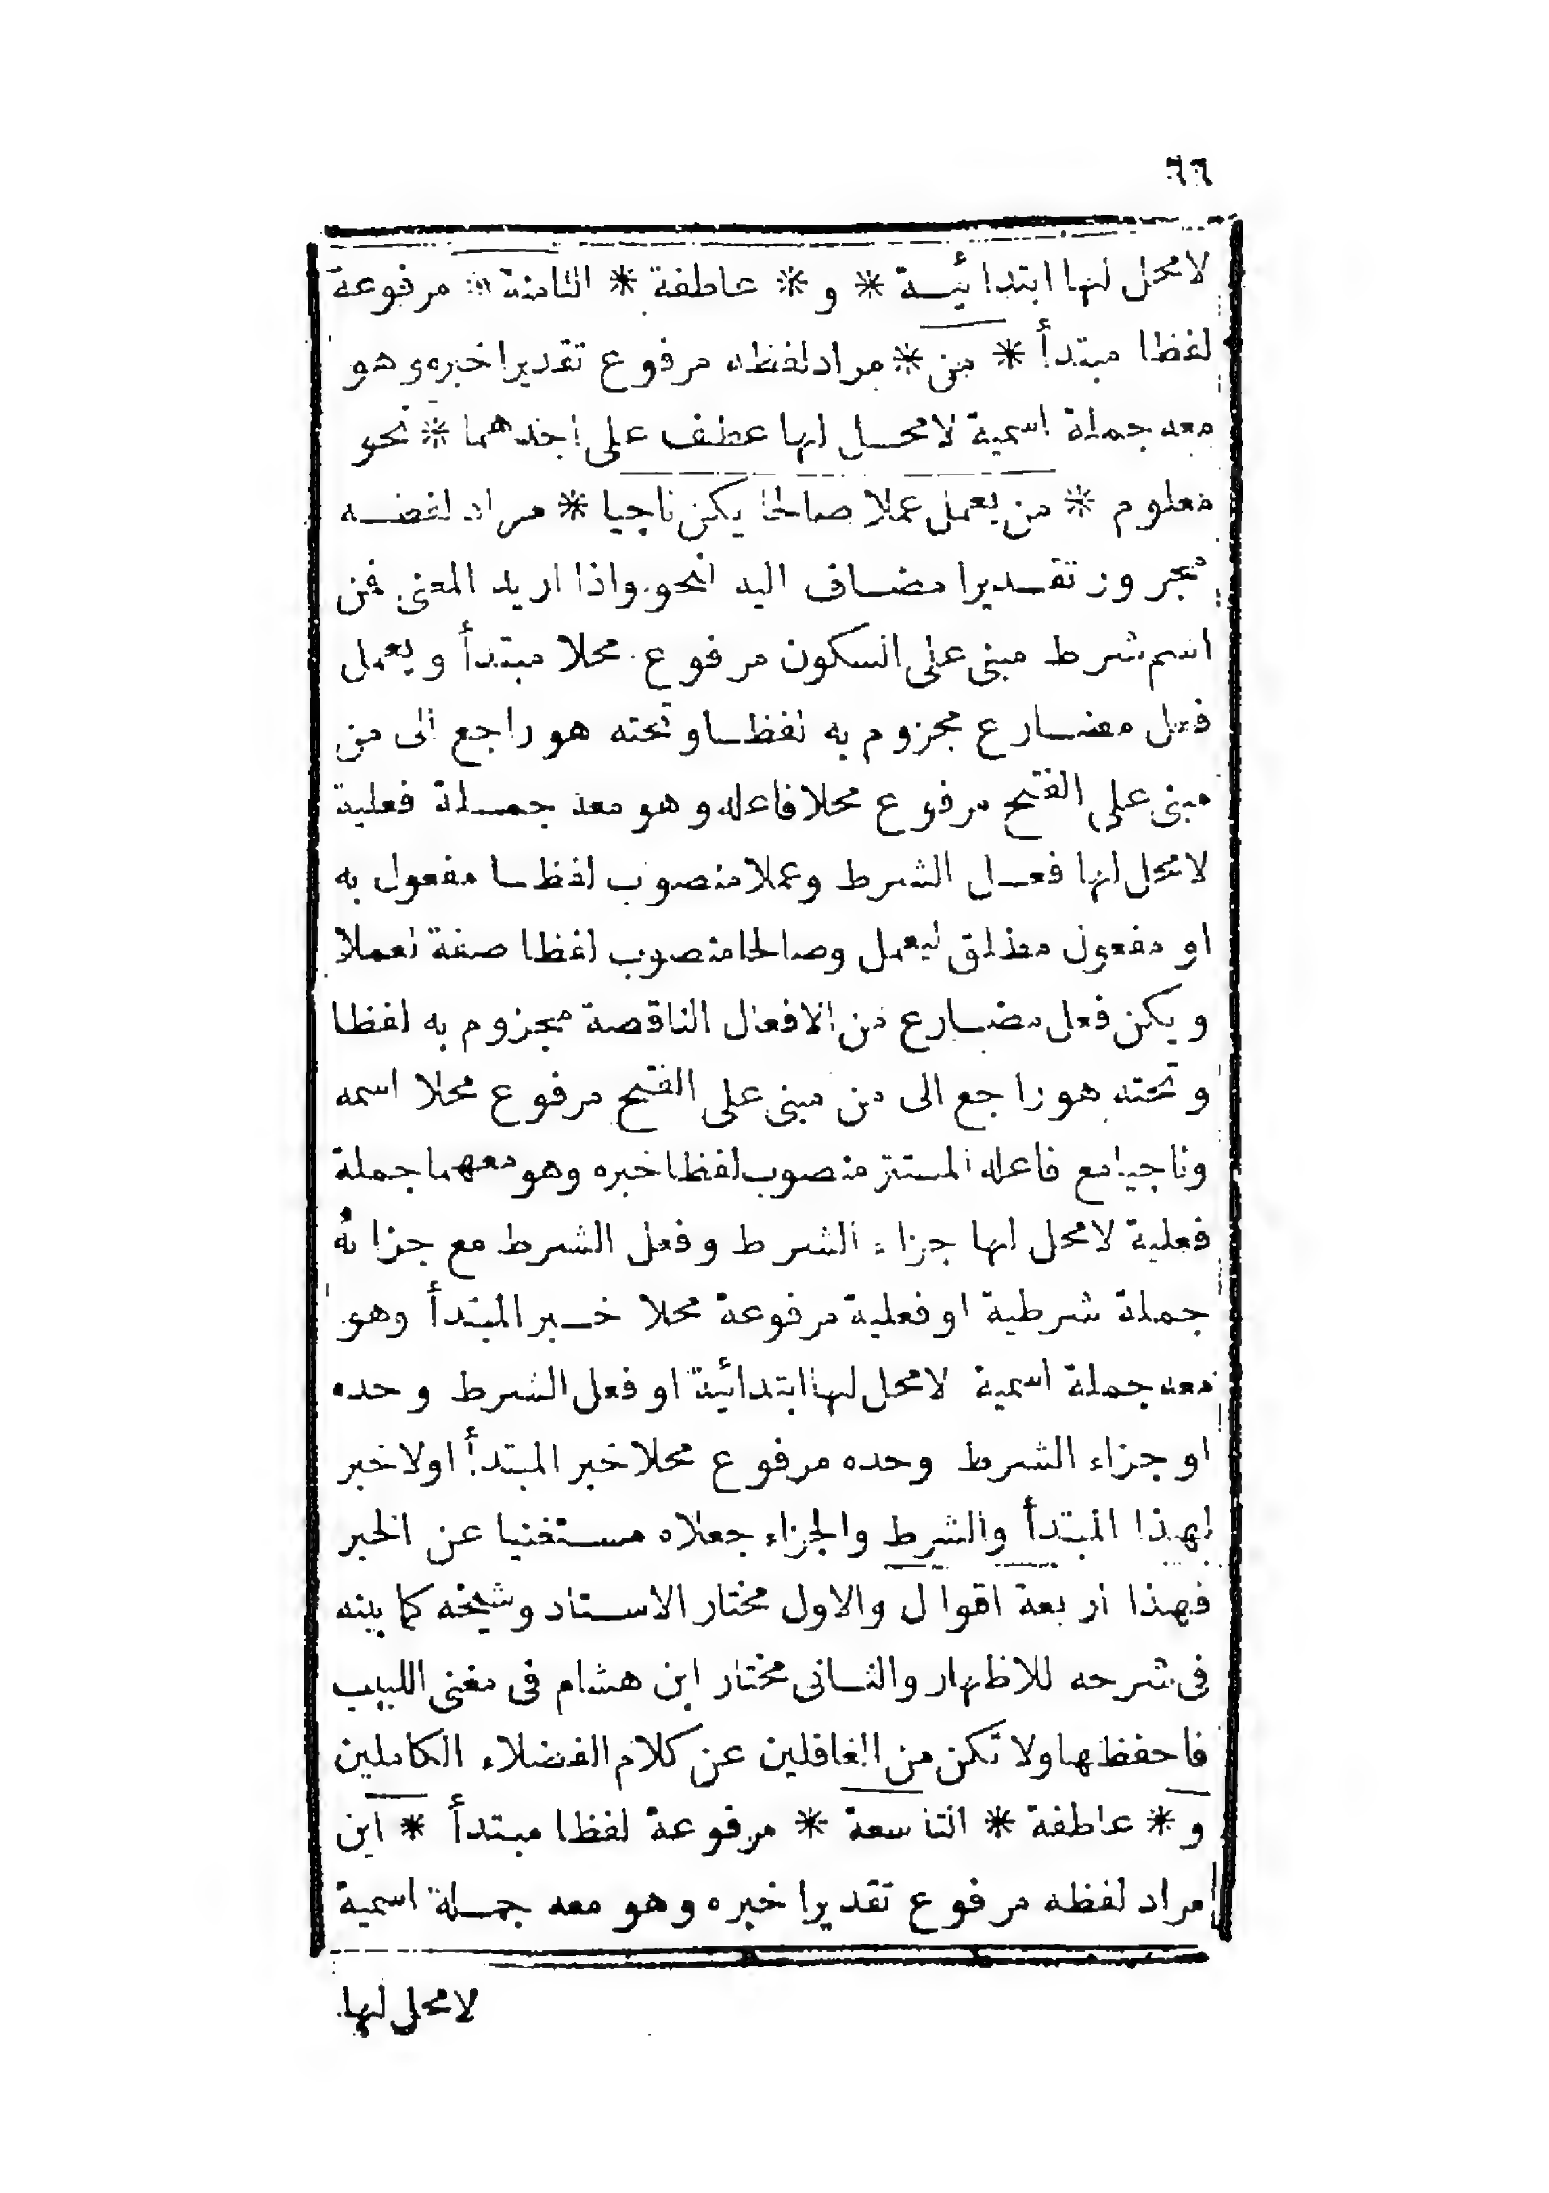 ٦٦
لا محل لها ابتدائيـة * و * عاطفة * الثامنة * مرفوعة
لفظا مبتدأ * من * مراد لفظه مرفوع تقديرا خبره وهو
معه جملة اسمية لا محـل لها عطف على احدهما * نحو
معلوم * من يعمل عملا صالحا يكن ناجيا * مراد لفظـه
مجرور تقـديرا مضـاف اليه لنحو واذا اريد المعنى فمن
اسم شرط مبنى على السكون مرفوع محلا مبتدأ ويعمل
فعل مضـارع مجزوم به لفظـا وتحته هو راجع الى من
مبنى على الفتح مرفوع محلا فاعله وهو معه جمـلة فعلية
لا محل لها فعـل الشرط وعملا منصوب لفظـا مفعول به
او مفعول مطلق ليعمل وصالحا منصوب لفظا صفة لعملا
ويكن فعل مضـارع من الافعال الناقصة مجزوم به لفظا
وتحته هو راجع الى من مبنى على الفتح مرفوع محلا اسمه
وناجيا مع فاعله المستتر منصوب لفظا خبره وهو معهما جملة
فعلية لا محل لها جزاء الشرط وفعل الشرط مع جزائه
جملة شرطية او فعلية مرفوعة محلا خـبر المبتدأ وهو
معه جملة اسمية لا محل لها ابتدائية او فعل الشرط وحده
او جزاء الشرط وحده مرفوع محلا خبر المبتدأ او لا خبر
لهذا المبتدأ والشرط والجزاء جعلاه مسـتغنيا عن الخبر
فهذا اربعة اقوال والاول مختار الاسـتاد وشيخه كما بينه
فى شرحه للاظهار والثـانى مختار ابن هشام فى مغنى اللبيب
فاحفظها ولا تكن من الغافلين عن كلام الفضلاء الكاملين
و * عاطفة * التاسعة * مرفوعة لفظا مبتدأ * اين
مراد لفظه مرفوع تقديرا خبره وهو معه جمـلة اسمية
لا محل لها